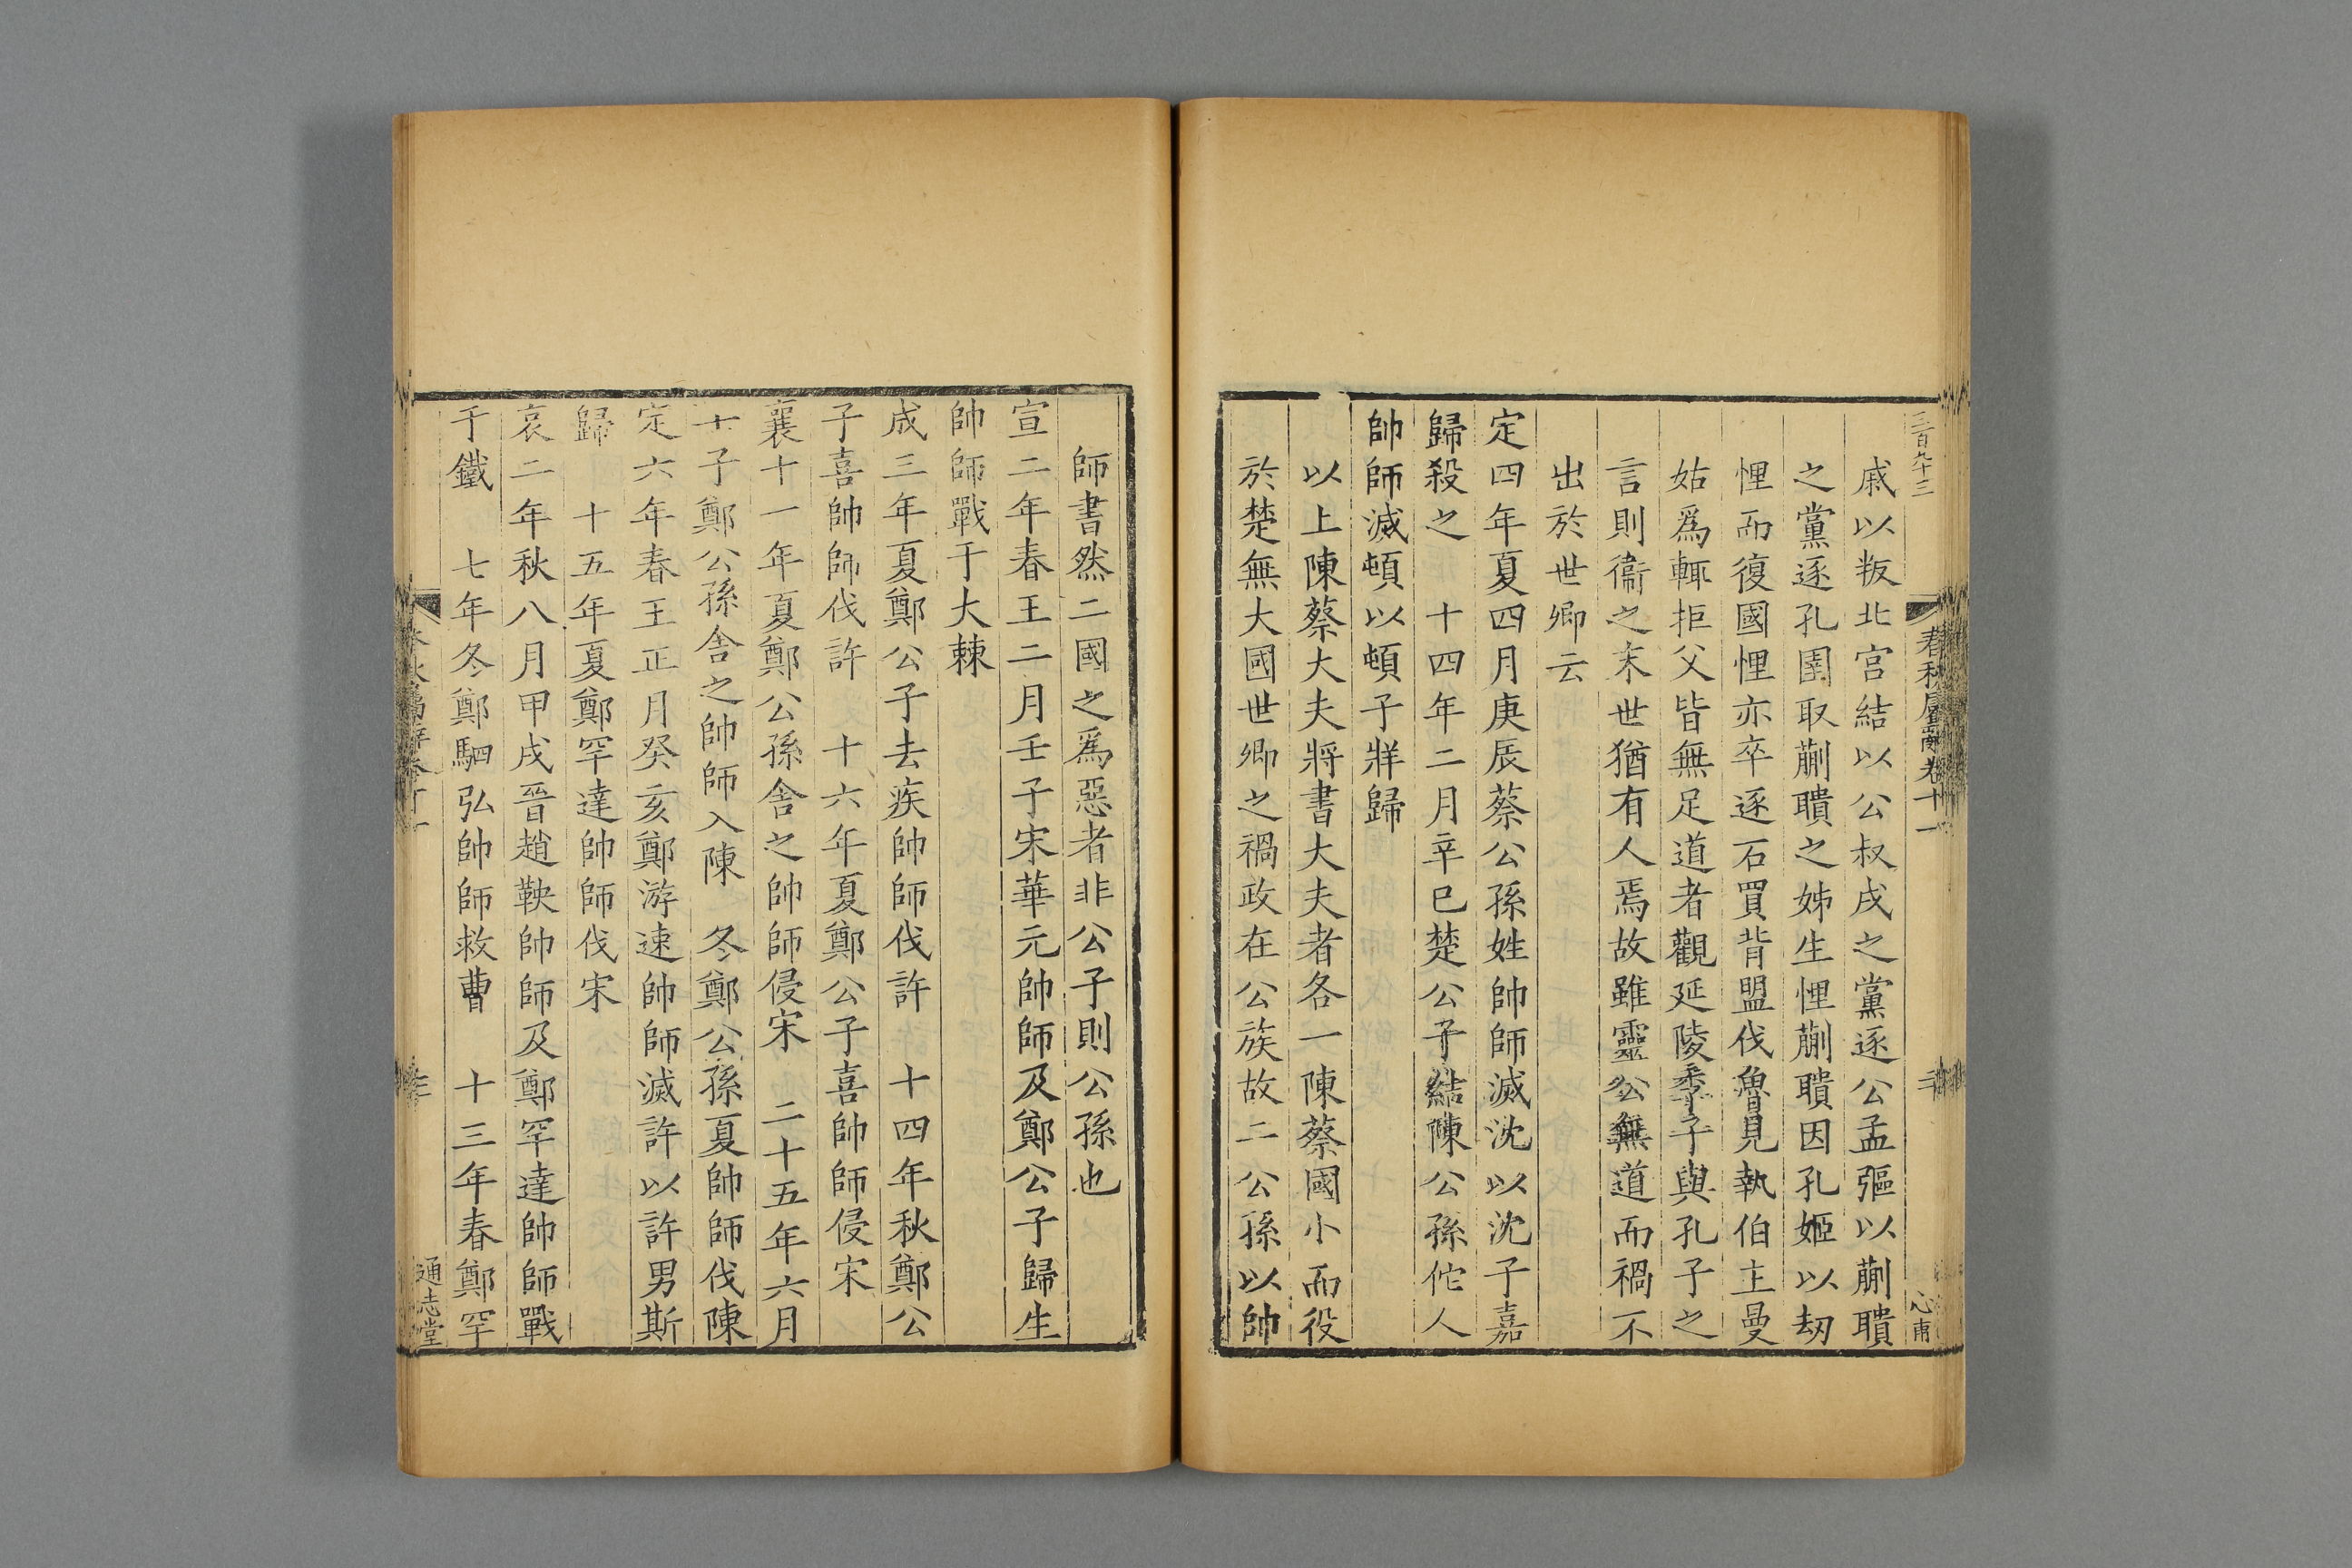 三百九十三
春秋屬辭卷十一
心甫
戚以叛北宫結以公叔戌之黨逐公孟彄以蒯聵
之黨逐孔圉取蒯聵之姊生悝蒯聵因孔姬以刼
悝而復國悝亦卒逐石買背盟伐魯見執伯主曼
姑爲輒拒父皆無足道者觀延陵季子與孔子之
言則衞之末世猶有人焉故雖靈公無道而禍不
出於世卿云
定四年夏四月庚辰蔡公孫姓帥師滅沈以沈子嘉
歸殺之 十四年二月辛巳楚公子結陳公孫佗人
帥師滅頓以頓子牂歸
以上陳蔡大夫將書大夫者各一陳蔡國小而役
於楚無大國世卿之禍政在公族故二公孫以帥
師書然二國之爲惡者非公子則公孫也
宣二年春王二月壬子宋華元帥師及鄭公子歸生
帥師戰于大棘
成三年夏鄭公子去疾帥師伐許 十四年秋鄭公
子喜帥師伐許 十六年夏鄭公子喜帥師侵宋
襄十一年夏鄭公孫舍之帥師侵宋 二十五年六月
十子鄭公孫舍之帥師入陳 冬鄭公孫夏帥師伐陳
定六年春王正月癸亥鄭游速帥師滅許以許男斯
歸 十五年夏鄭罕達帥師伐宋
哀二年秋八月甲戌晉趙鞅帥師及鄭罕達帥師戰
于鐵 七年冬鄭駟弘帥師救曹 十三年春鄭罕
通志堂